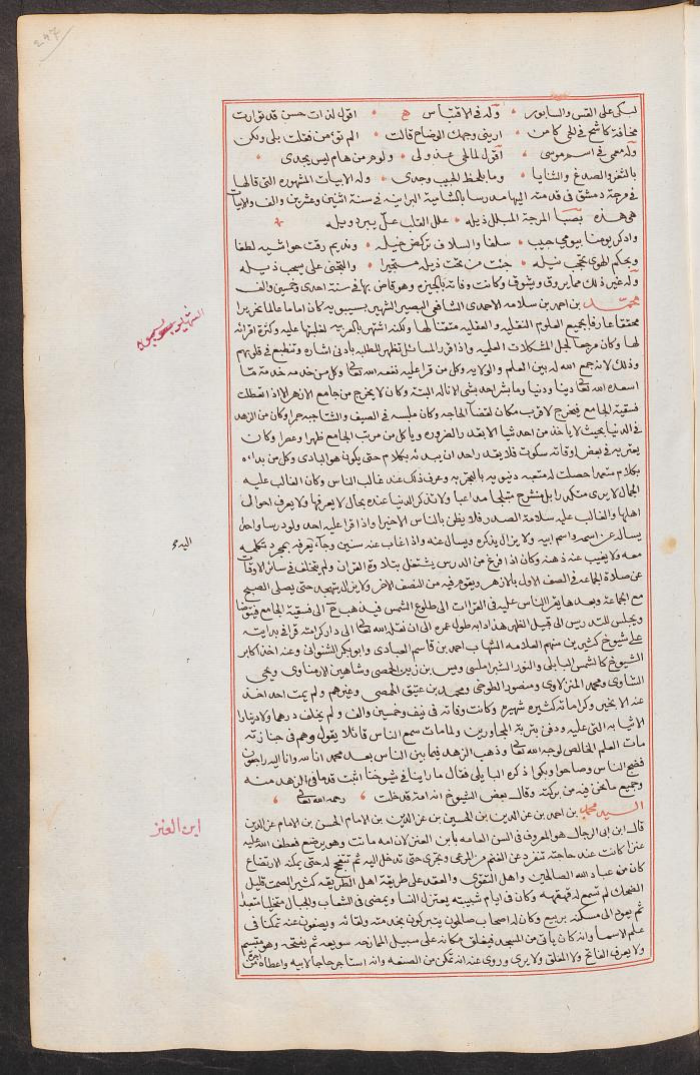 ٢٤٧
ليبكى على القس والسابور ٠ وله فى الاقتباس ٠ اقول لذات حسن قد توارت
مخافة كاشح فى الحى كامن ٠ ارينى وجهك الوضاح قالت ٠ الم تؤمن فقلت بلى ولكن
وله معمى فى اسم موسى ٠ أقول لمالحى عذولى ٠ ولوم من هام ليس يجدى ٠
بالثغر والصدغ والثنايا ٠ وما بلحظ الحبيب وجدى ٠ وله الابيات المشهوره التى قالها
فى مرجة دمشق فى قدمته اليها مدرسا بالشامية البرانيه فى سنة اثنين وعشرين والف والابيات
هى هذه بصبا المرجة المبلل ذيله ٠ علل القلب علّ يبرد ويله
واذكر يومنا بيومى حبيب ٠ سلفا والسلاف تركض خيله ٠ ونديم رقت حواشيه لطفا
وبحكم الهوى تحجب نيله ٠ جئت من تحت ذيله مستجيرا ٠ والتجنى على يسحب ذيله
وله غير ذلك مما يروق ويشوق وكانت وفاته بالجيزه وهو قاض بها فى سنة احدى وخمسين والف
محمد بن احمد بن سلامه الاحمدى الشافعى البصير الشهير بسيبويه كان اماما عالما نحريرا
الشهير بسيبويه
محققا عارفا بجميع العلوم النقليه والعقليه متقنا لها ولكنه اشتهر بالعربيه لغلبتها عليه وكثرة اقرائه
لها وكان مرجعا لحل المشكلات العلميه واذا قرر المسائل تظهر للطلبه بادنى اشاره وتنطبع فى قلوبهم
وذلك لانه جمع الله له بين العلم والولايه وكل من قرا عليه نفعه الله تعالى وكل من خدمه خدمة ما
اسعده الله تعالى دينا ودنيا وما بشر احد بشى الا ناله البتة وكان لا يخرج من جامع الازهر الا اذا اقفلت
فسقية الجامع فيخرج لاقرب مكان لقضا الحاجه وكان ملبسه فى الصيف والشتا جبه حمرا وكان من الزهد
فى الدنيا بحيث لا ياخذ من احد شيا الا بقدر الضروره وياكل من مرتب الجامع ظهرا وعصرا وكان
يعتريه فى بعض اوقاته سكوت فلا يقدر احد ان يبدئه بكلام حتى يكون هو البادى وكل من بداه
بكلام متعمدا حصلت له متعبه دنيويه بالتجربه وعرف ذلك عند غالب الناس وكان الغالب عليه
الجمال لا يرى متكدرا بل منشرح متبلجا مداعبا ولا تذكر الدنيا عنده بحال لا يعرفها ولا يعرف احوالى
اهلها والغالب عليه سلامة الصدر فلا يظن بالناس الا خيرا واذا قرا عليه احد ولو درسا واحدا
يساله عن اسمه واسم ابيه ولا يزال يذكره ويسال عنه واذا غاب عنه سنين وجاء يعرفه بمجرد تكلمه
معه ولا يغيب عنه ذهنه وكان اذا فرغ من الدرس يشتغل بتلاوة القران ولم يتخلف فى سائر الاوقات
عن صلاة الجماعه فى الصف الاول بالازهر ويقوم فيه من النصف الاخر ولا يزال يتهجد حتى يصلى الصبح
مع الجماعة وبعدها يقرا الناس عليه فى القراات الى طلوع الشمس فيذهب الى فسقية الجامع فيتوضا
ويجلس للتدريس الى قبيل الظهر هذا دابه طول عمره الى ان نقله الله تعالى الى دار كرامته قرا فى بدايته
على شيوخ كثيرين منهم العلامه الشهاب احمد بن قاسم العبادى وابو بكر الشنوانى وعنه اخذ اكابر
الشيوخ كالشمس البابلى والنور الشبراملسى ويس بن زين الحمصى وشاهين الارمناوى ويحيى
الشاوى ومحمد المنزلاوى ومنصور الطوخى ومحمد بن عتيق الحمصى وغيرهم ولم يمت احد اخذ
عنه الا بخير وكراماته كثيره شهيره وكانت وفاته فى نيف وخمسين والف ولم يخلف درهما ولا دينارا
الا ثيابه التى عليه ودفن بتربة المجاورين ولما مات سمع الناس قائلا يقول وهم فى جنازته
مات العلم الخالص لوجه الله تعالى وذهب الزهد فيما بين الناس بعد محمد انا لله وانا اليه راجعون
فضج الناس وصاحوا وبكوا ذكره البابلى فقال ما راينا فى شيوخنا اثبت قدما فى الزهد منه
وجميع ما نحن فيه من بركته وقال بعض الشيوخ انه امة قد خلت ٠ رحمه الله تعالى ٠
السيد محمد بن احمد بن عز الدين بن الحسين بن عز الدين بن الامام الحسن بن الامام عز الدين
ابن العنز
قال ابن ابى الرجال هو المعروف فى السن العامه بابن العنز لان امه ماتت وهو يرضع فعطف الله عليه
عنزا كانت عند حاجته تنفرد عن الغنم من المرعى وتجرى حتى تدخل اليه ثم تنفحج له حتى يمكنه الارتضاع
كان من عباد الله الصالحين واهل التقوى والعقد على طريقة اهل الطريقه كثير الصمت قليل
الضحك لم تسمع له قهقهه وكان فى ايام شبيبته يعتزل النسا ويمضى فى الشعاب والجبال متخليا متعبدا
ثم يعود الى مسكنه بربيع وكان له اصحاب صالحون يتبركون بخدمته ولقائه ويصفون عنه تمكنا فى
علم الاسما وانه كان ياتى من المسجد فيغلق مكانه على سبيل الممازحه سويعه ثم يفتحه وهو متبسم
ولا يعرف الفاتح ولا المغلق ولا يرى وروى عنه انه تمكن من الصنعه وانه استاجر حاجا لابيه واعطاه اجرة من